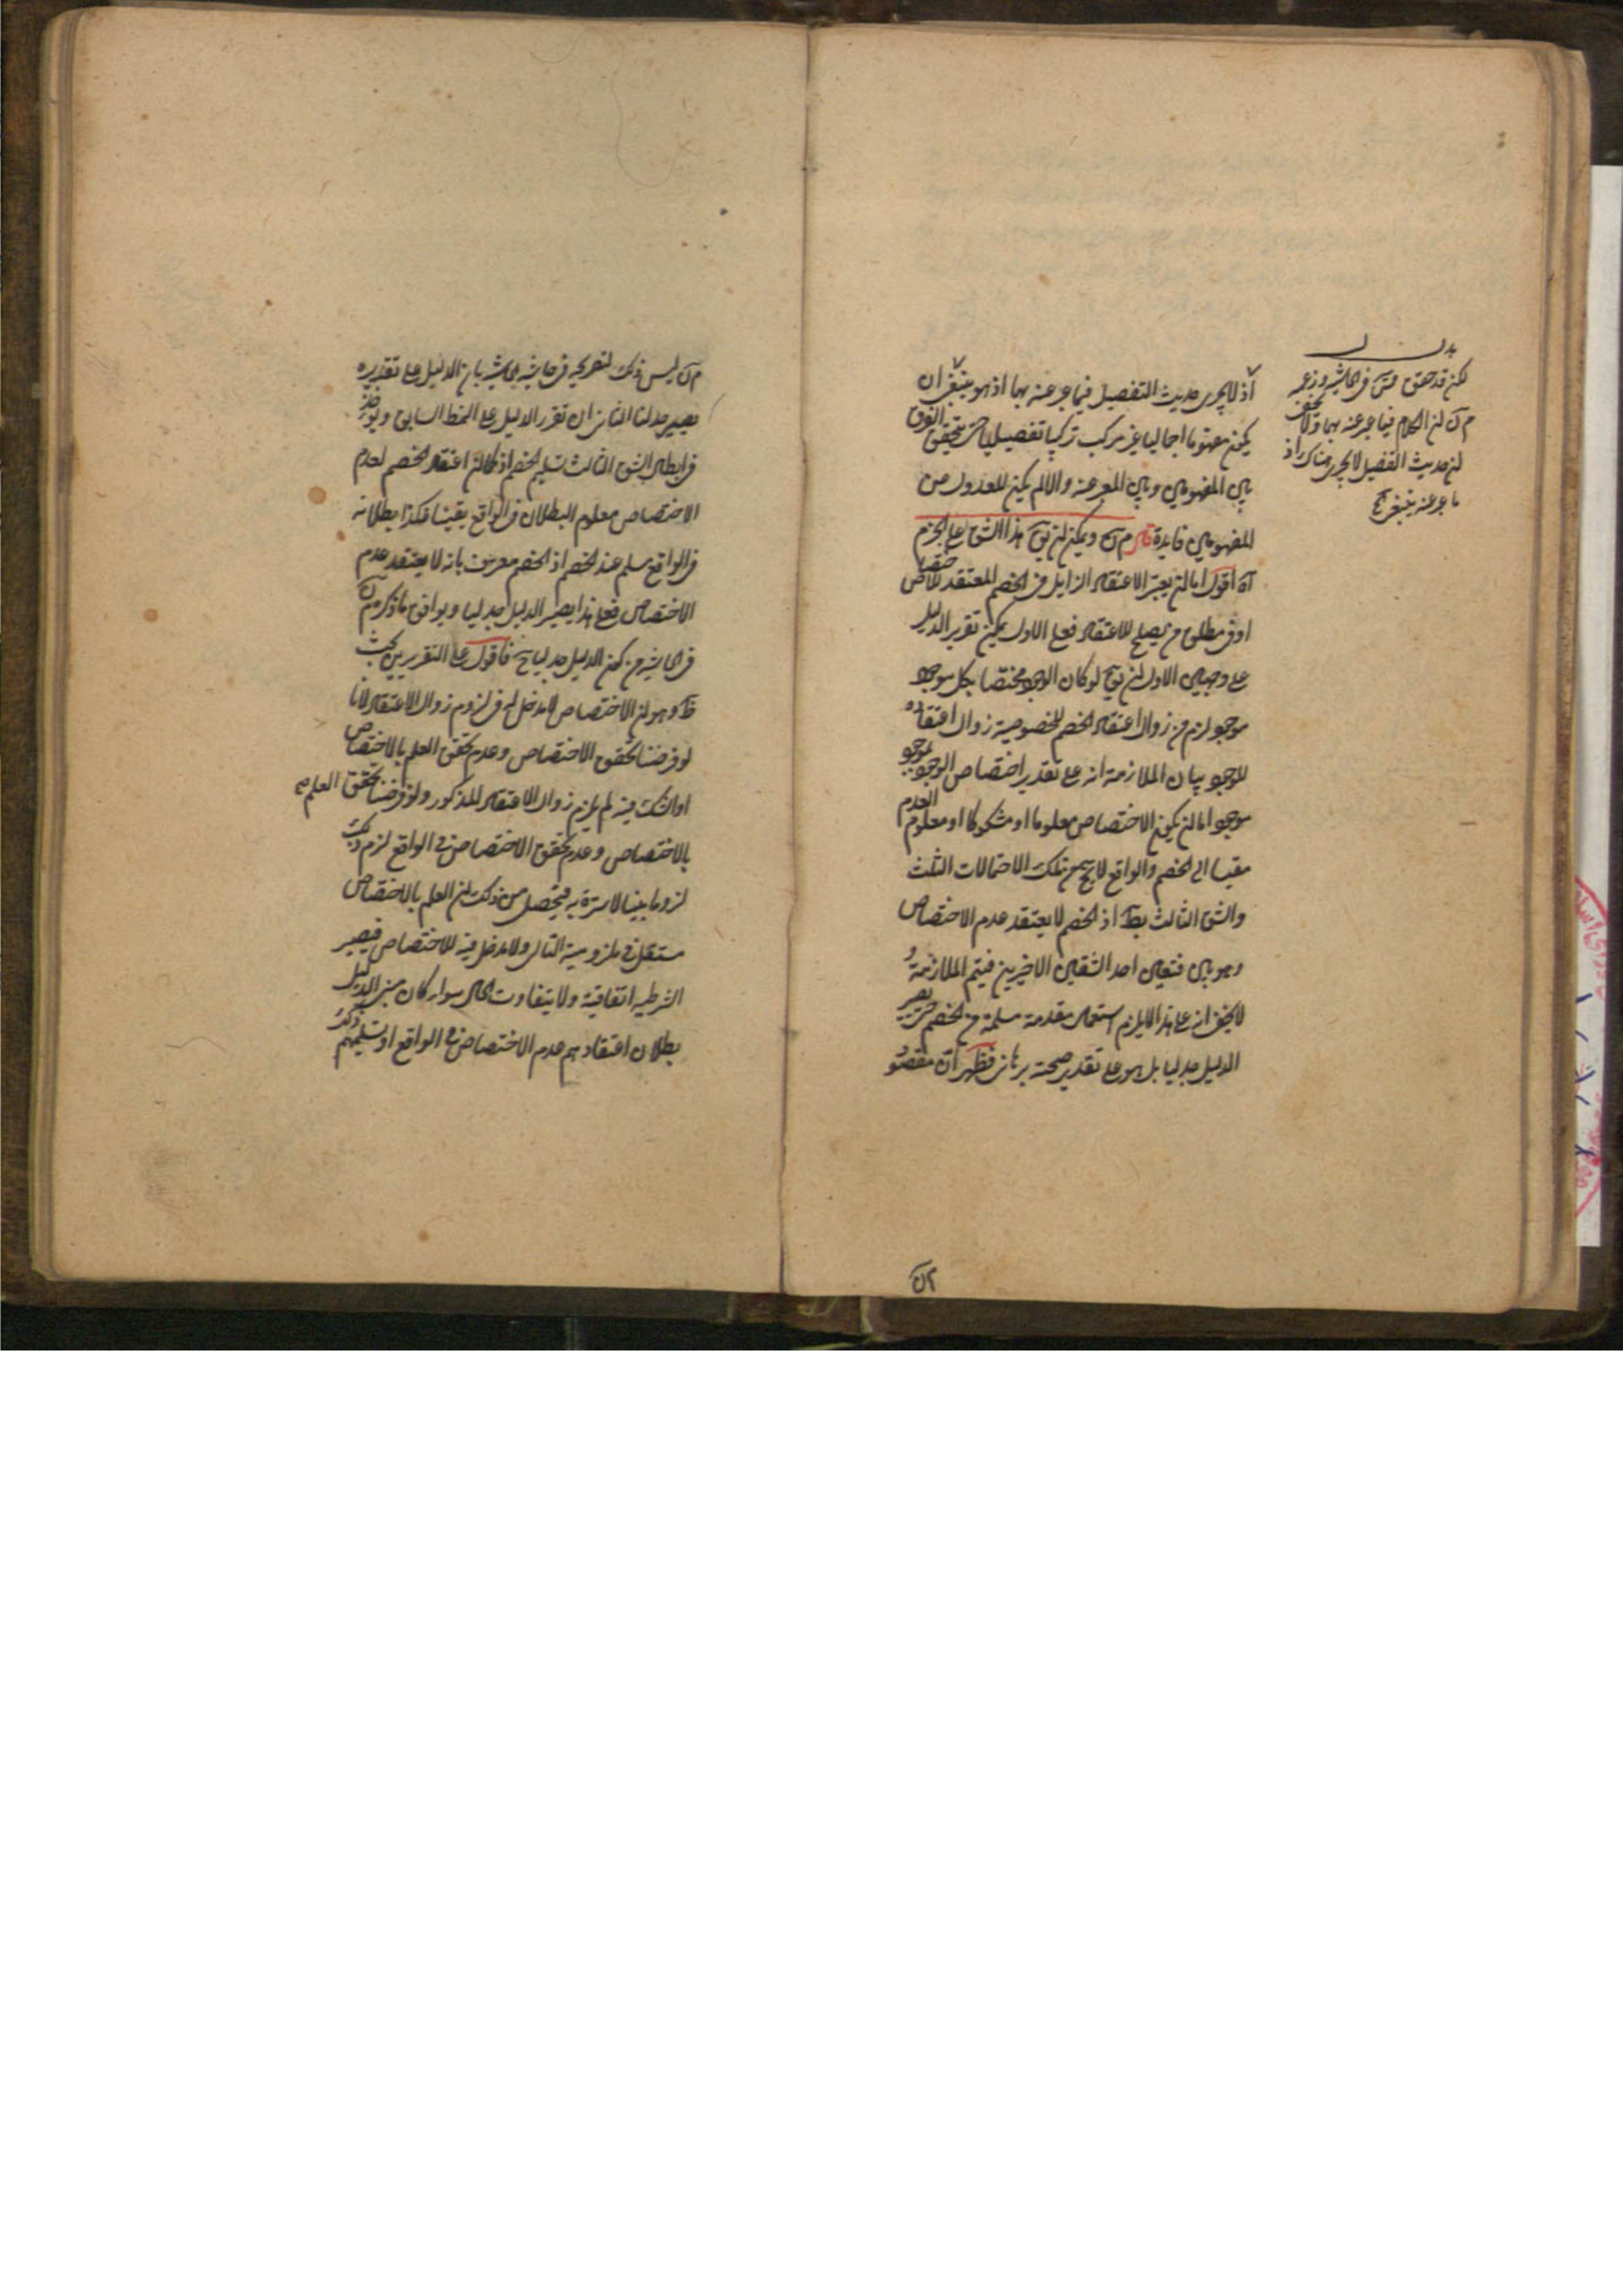 اذ لا يجرى حديث التفصيل فيما عبر عنه بهما اذ هو ينبغى ان
يكون مفهوما اجماليا غير مركب تركيبا تفصيليا حتى يتحقق الفرق
بين المفهومين وبين المعبر عنه والا لم يكن للعدول من
المفهومين فايدة قال م ن ويمكن ان يق هذا الشق على الجزم
آه اقول اما ان يعتبر الاعتقاد الزايل من الخصم المعتقد للاختصاص
او من مطلق من يصلح للاعتقاد فعلى الاول يمكن تقرير الدليل
على وجهين الاول ان يق لو كان الوجود مختصا بكل موجود
موجود لزم من زوال اعتقاد الخصم للخصوصية زوال اعتقاده
للوجود بيان الملازمة انه على تقدير اختصاص الوجود بموجود
موجود اما ان يكون الاختصاص معلوما او مشكوكا او معلوم العدم
مقيسا الى الخصم والواقع لا يخ من تلك الاحتمالات الثلث
والشق الثالث بط اذ الخصم لا يعتقد عدم الاختصاص
وهو بين فتعين احد الشقين الاخيرين فيتم الملازمة و
لا يخفى انه على هذا لا يلزم استعمال مقدمة مسلمة من الخصم حتى يصير
الدليل جدليا بل هو على تقدير صحته برهانى فظهر ان مقصود
لكن قد حقق فى الحاشية وزعم
م ن ان الكلام فيما عبر عنه بهما ولا يخفى
ان حديث التفصيل لا يجرى هناك اذ
ما عبر عنه ينبغى
م ن
م ن ليس ذلك لتصريحه فى حاشية الحاشية بان الدليل على تقديره
يصير جدليا الثانى ان تقرر الدليل على النمط السابق ويؤخذ
فى ابطال الشق الثالث تسليم الخصم اذ كما ان اعتقاد الخصم لعدم
الاختصاص معلوم البطلان فى الواقع يقينا فكذا بطلانه
فى الواقع مسلم عند الخصم اذ الخصم معترف بانه لا يعتقد عدم
الاختصاص فعلى هذا يصير الدليل جدليا ويوافق ما ذكره م ن
فى الحاشية من كون الدليل جدليا ح فاقول على التقريرين بحث
ظ وهو ان الاختصاص لا مدخل له فى لزوم زوال الاعتقاد لانا
لو فرضنا تحقق الاختصاص وعدم تحقق العلم بالاختصاص
او الشك فيه لم يلزم زوال الاعتقاد المذكور ولو فرضنا تحقق العلم
بالاختصاص وعدم تحقق الاختصاص فى الواقع لزم ذلك
لزوما بينا لا سترة به فيتحصل من ذلك ان العلم بالاختصاص
مستقل فى ملزومية التالى ولا مدخل فيه للاختصاص فيصير
الشرطية اتفاقية ولا يتفاوت الحال سواء كان مبنى الدليل
بطلان اعتقادهم عدم الاختصاص فى الواقع او تسليمهم ذلك